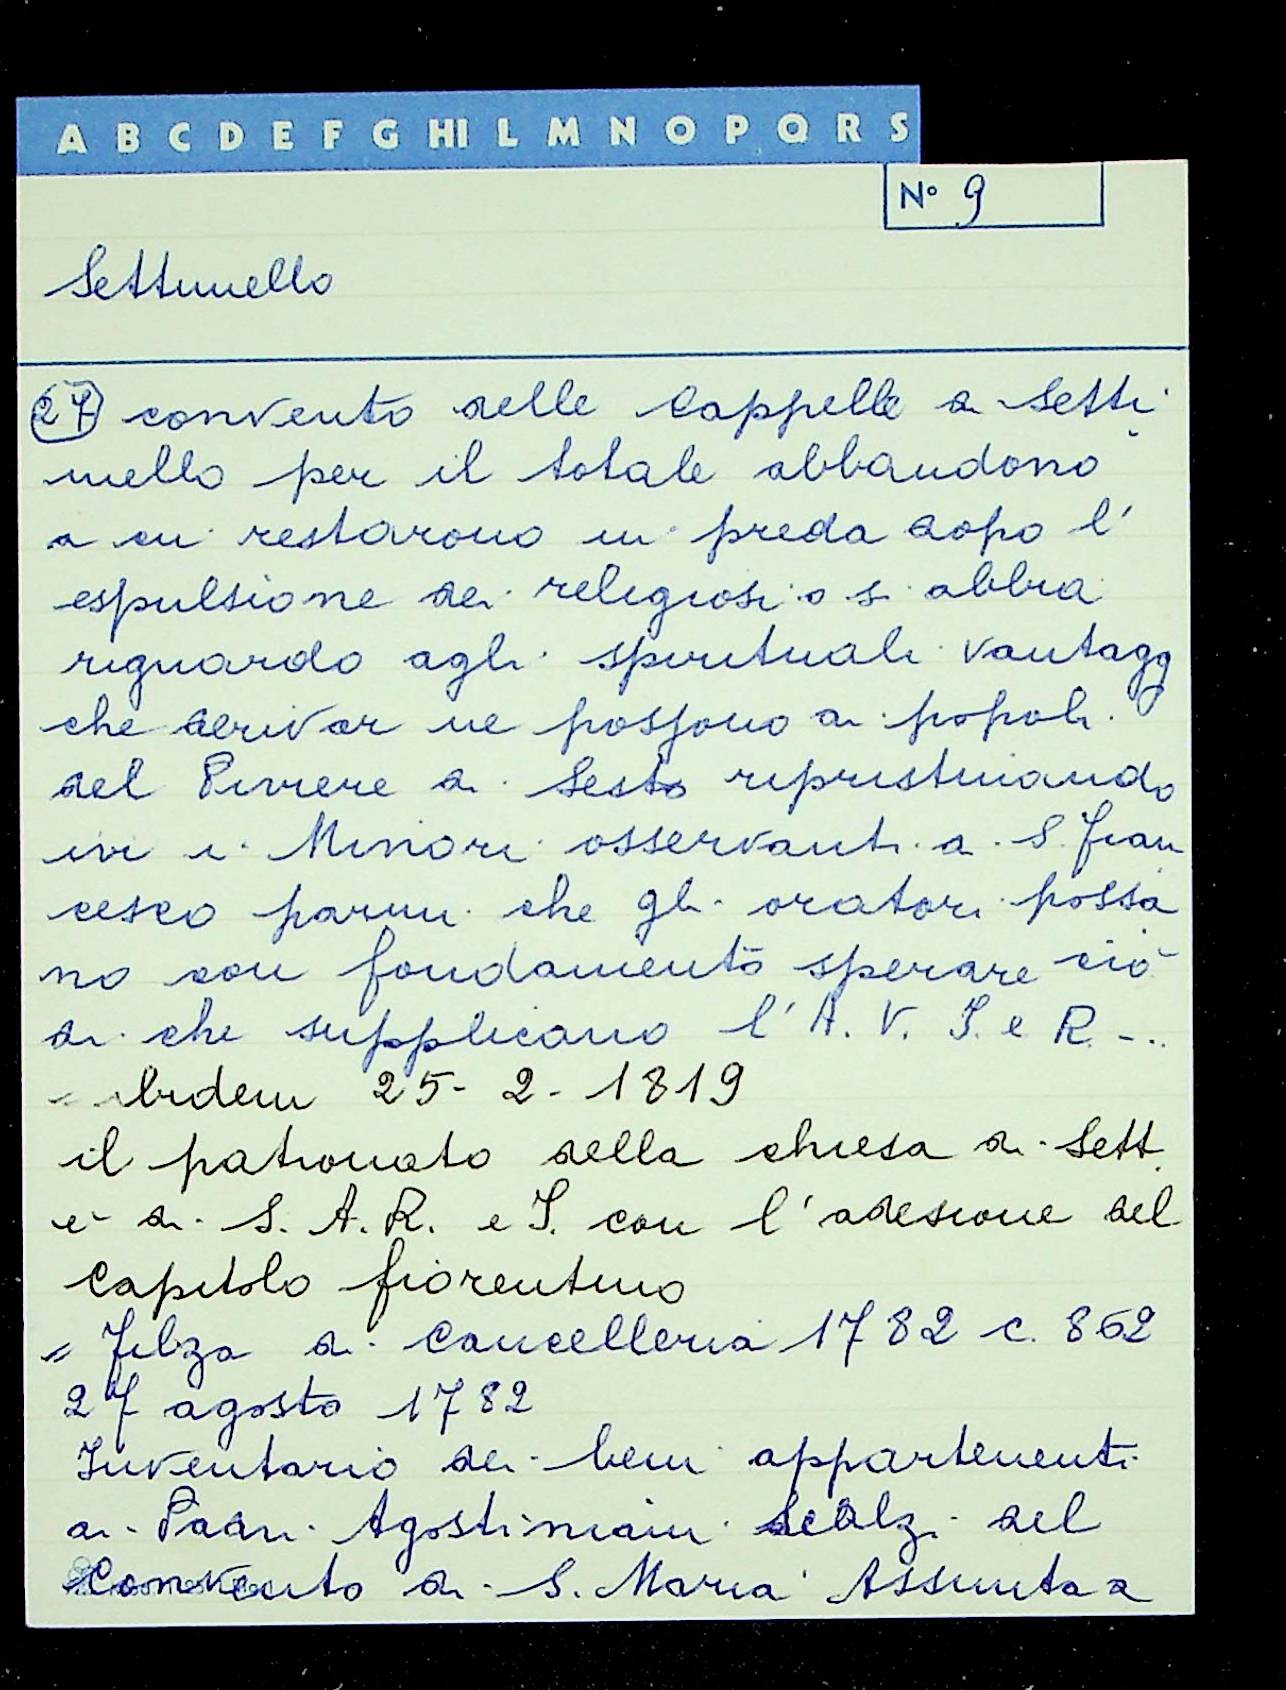 A B C D E F G HI L M N O P Q R S
N° 9
Settimello
27 convento delle Cappelle di Setti
mello per il totale abbandono
a cui restarono in preda dopo l'
espulsione dei religiosi o si abbia
riguardo agli spirituali vantagg
che derivar ne possono ai popoli
del Piviere di Sesto ripristinando
ivi i Minori osservanti di S. Fran
cesco parmi che gli oratori possa
no con fondamento sperare ciò
di che supplicano l'A. V. I. e R. -..
= ibidem 25-2-1819
il patronato della chiesa di Sett.
è di S. A. R. e I. con l'adesione del
Capitolo fiorentino
= Filza di Cancelleria 1782 c. 862
27 agosto 1782
Inventario dei beni appartenenti
ai Padri Agostiniani Scalzi del
Convento di S. Maria Assunta a